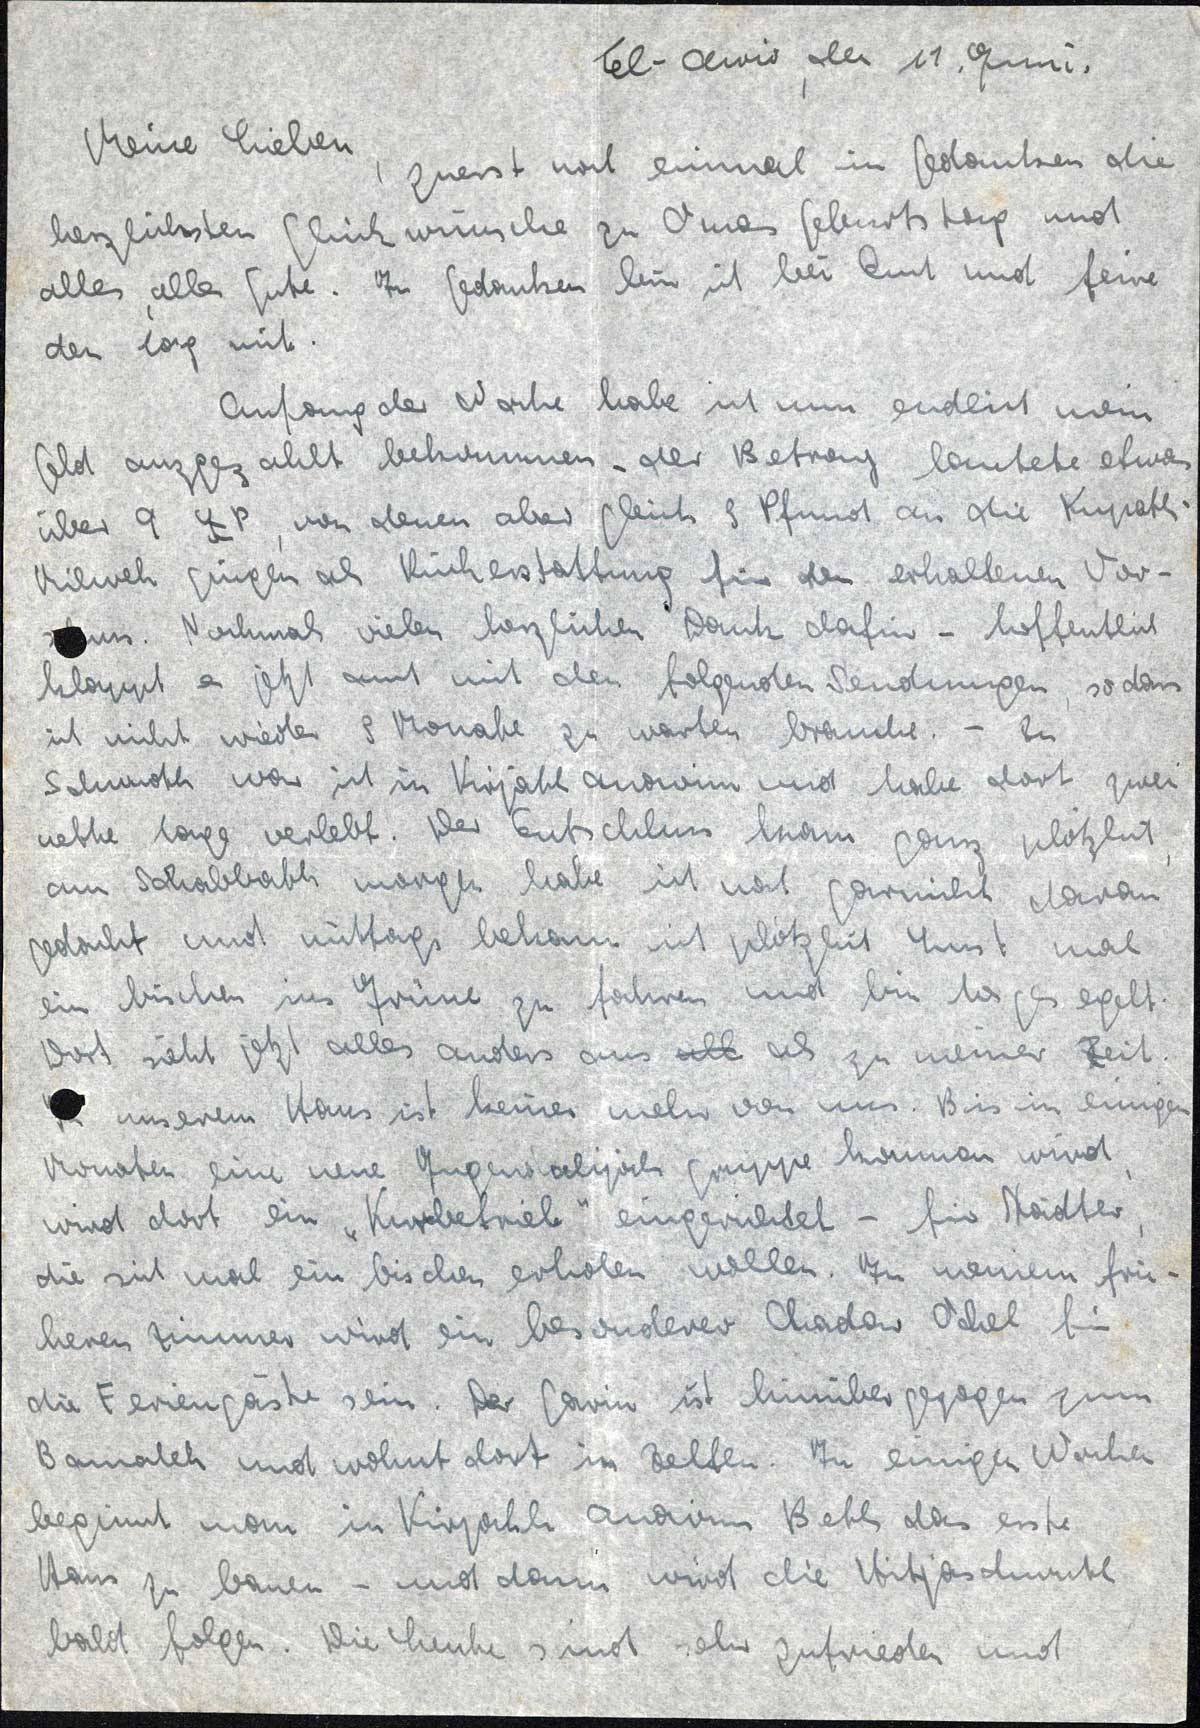 Tel-Awiw, den 11. Juni.
Meine Lieben, zuerst noch einmal in Gedanken die
herzlichsten Glückwünsche zu Omas Geburtstag und
alles, alles Gute. In Gedanken bin ich bei Euch und feire
den Tag mit.
Anfang der Woche habe ich nun endlich mein
Geld ausgezahlt bekommen - der Betrag lautete etwas
über 9 £P, von denen aber gleich 5 Pfund an die Kupath-
Milweh gingen als Rückerstattung für den erhaltenen Vor-
schuss. Nochmals vielen herzlichen Dank dafür - hoffentlich
klappt es jetzt auch mit den folgenden Sendungen, sodass
ich nicht wieder 5 Monate zu warten brauche. - Zu
Schwuoth war ich in Kirjath Anawim und habe dort zwei
nette Tage verlebt. Der Entschluss kam ganz plötzlich,
am Schabbath morgen habe ich noch garnicht daran
gedacht und mittags bekam ich plötzlich Lust mal
ein bischen ins Grüne zu fahren und bin losgesegelt.
Dort sieht jetzt alles anders aus als zu meiner Zeit.
In unserem Haus ist keiner mehr von uns. Bis in einigen
Monaten eine neue Jugendalijah gruppe kommen wird,
wird dort ein „Kurbetrieb" eingerichtet - für Städter,
die sich mal ein bischen erholen wollen. In meinem frü-
heren Zimmer wird ein besonderer Chadar Ochel für
die Feriengäste sein. Der Garin ist hinübergezogen zum
Bamaleh und wohnt dort in Zelten. In einigen Wochen
beginnt man in Kirjath Anawim Beth das erste
Haus zu bauen - und dann wird die Hitjaschwuth
bald folgen. Die Leute sind sehr zufrieden und